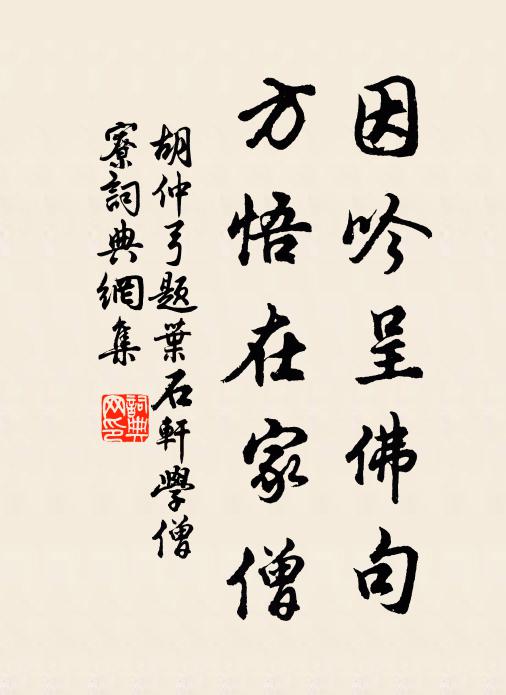 因吟呈佛句
方悟在家僧
胡仲弓題葉石軒學僧
寮詞典網集
詞典網印